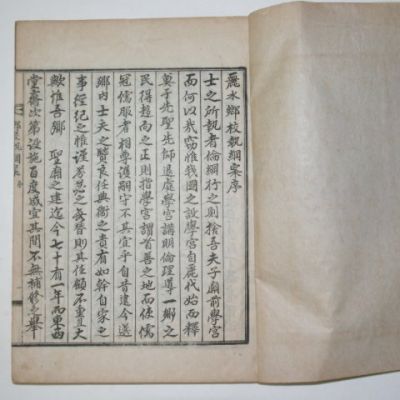 麗水鄉校執綱案序
士之所執者倫綱行之則捨吾夫子廟前學宮
而何以哉窃惟我國之設學宮自羅代始而釋
奠于先聖先師退處學宮講明倫理導一鄉之
民得趨向之正則指學宮謂首善之地而任儒
冠儒服者相尊護嗣守不其宜乎自昔逮今送
鄉內士夫之賢良任典衛之責有如幹自家之
事經紀之惟謹若
則其任顧不重且大
歟惟吾鄉 聖廟之建迄今七十有一年而東西
堂齋次第設施百度咸宜其間不無補修之擧